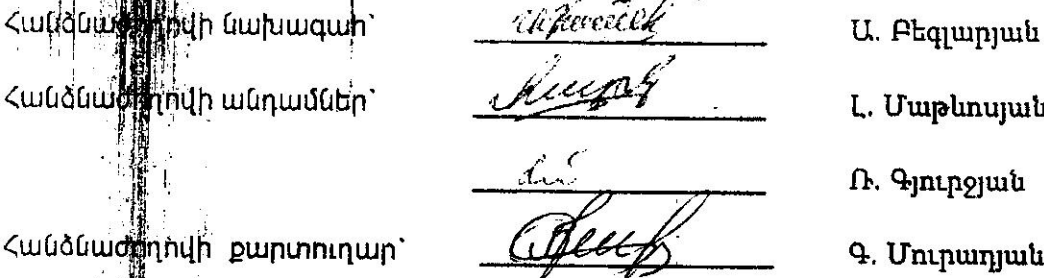 Հանձնաժողովի նախագահ՝ Ա. Բեգլարյան
Հանձնաժողովի անդամներ՝ Լ. Մաթևոսյան
Ռ. Գյուրջյան
Հանձնաժողովի քարտուղար՝ Գ. Մուրադյան